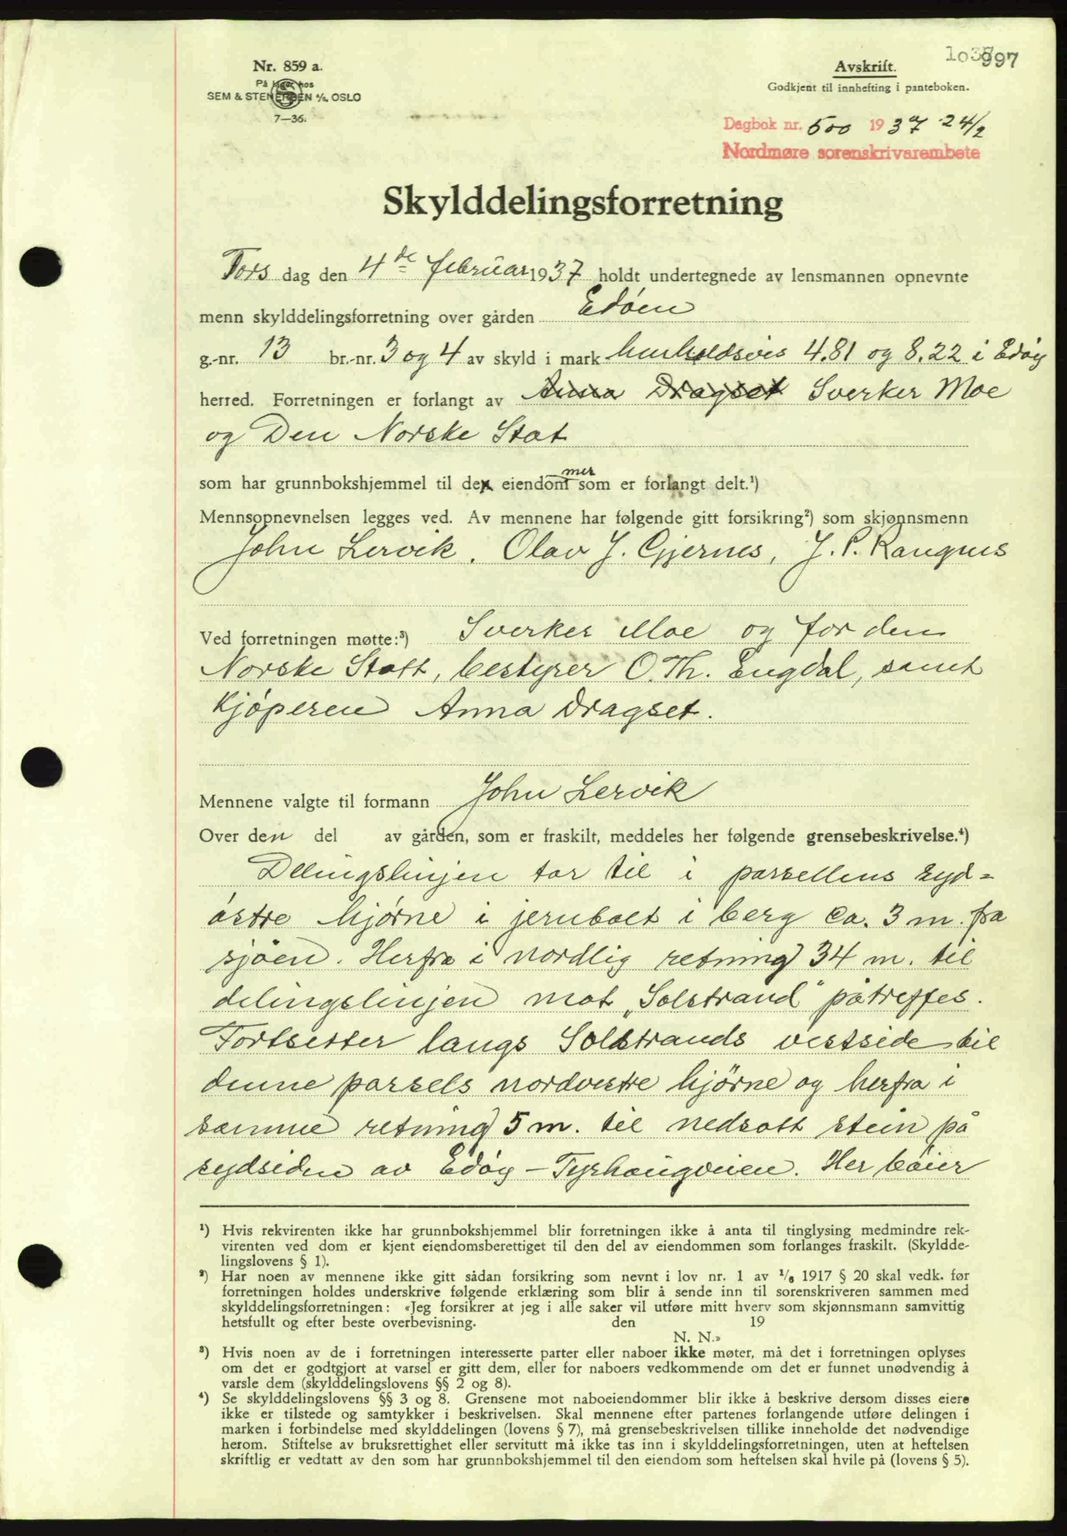 1037
997
Nr. 859 a.
På lager hos
SEM & STENERSEN A/S, OSLO
7—36.
Avskrift.
Godkjent til innhefting i panteboken.
Dagbok nr. 500 1937 24/2
Nordmøre sorenskrivarembete
Skylddelingsforretning
Tors dag den 4de februar 1937 holdt undertegnede av lensmannen opnevnte
menn skylddelingsforretning over gården Edøen
g.-nr. 13 br.-nr. 3 og 4 av skyld i mark henholdsvis 4.81 og 8.22 i Edøy
herred. Forretningen er forlangt av Anna Dragset Sverker Moe
og Den Norske Stat
som har grunnbokshjemmel til dex eiendommer som er forlangt delt.¹)
Mennsopnevnelsen legges ved. Av mennene har følgende gitt forsikring²) som skjønnsmenn
John Lervik, Olav J. Gjernes, J. P. Rangnes
Ved forretningen møtte:³) Sverker Moe og for den
Norske Statt, bestyrer O. Th. Engdal, samt
kjøperen Anna Dragset.
Mennene valgte til formann John Lervik
Over den del av gården, som er fraskilt, meddeles her følgende grensebeskrivelse.⁴)
Delingslinjen tar til i parsellens syd-
østre hjørne i jernbolt i berg ca. 3 m. fra
sjøen. Herfra i nordlig retning 34 m. til
delingslinjen mot „Solstrand" påtreffes.
Fortsetter langs Solstrands vestside til
denne parsels nordvestre hjørne og herfra i
samme retning 5 m. til nedsatt stein på
sydsiden av Edøy – Tyrhaugveien. Her bøier
¹) Hvis rekvirenten ikke har grunnbokshjemmel blir forretningen ikke å anta til tinglysing medmindre rek-
virenten ved dom er kjent eiendomsberettiget til den del av eiendommen som forlanges fraskilt. (Skyldde-
lingslovens § 1).
²) Har noen av mennene ikke gitt sådan forsikring som nevnt i lov nr. 1 av 1/6 1917 § 20 skal vedk. før
forretningen holdes underskrive følgende erklæring som blir å sende inn til sorenskriveren sammen med
skylddelingsforretningen: «Jeg forsikrer at jeg i alle saker vil utføre mitt hverv som skjønnsmann samvittig
hetsfullt og efter beste overbevisning. den 19
N. N.»
³) Hvis noen av de i forretningen interesserte parter eller naboer ikke møter, må det i forretningen oplyses
om det er godtgjort at varsel er gitt dem, eller for naboers vedkommende om det er funnet unødvendig å
varsle dem (skylddelingslovens §§ 2 og 8).
⁴) Se skylddelingslovens §§ 3 og 8. Grensene mot naboeiendommer blir ikke å beskrive dersom disses eiere
ikke er tilstede og samtykker i beskrivelsen. Skal mennene efter partenes forlangende utføre delingen i
marken i forbindelse med skylddelingen (lovens § 7), må grensebeskrivelsen tillike inneholde det nødvendige
herom. Stiftelse av bruksrettighet eller servitutt må ikke tas inn i skylddelingsforretningen, uten at heftelsen
skriftlig er vedtatt av den som har grunnbokshjemmel til den eiendom som heftelsen skal hvile på (lovens § 5).